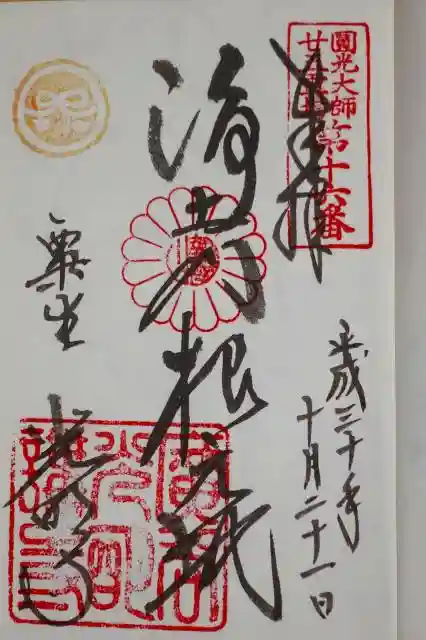 圓光大師
廿五霊場
第十六番
奉拝
平成三十年
十月二十一日
浄土門根元地
粟生
光明寺